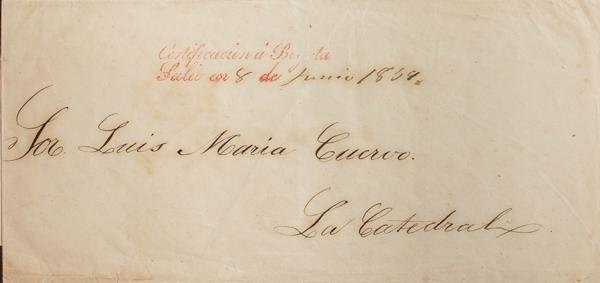 Certificacion á Bogota
Salió en 8 de Junio 1859
Sor. Luis Maria Cuervo.
La Catedral